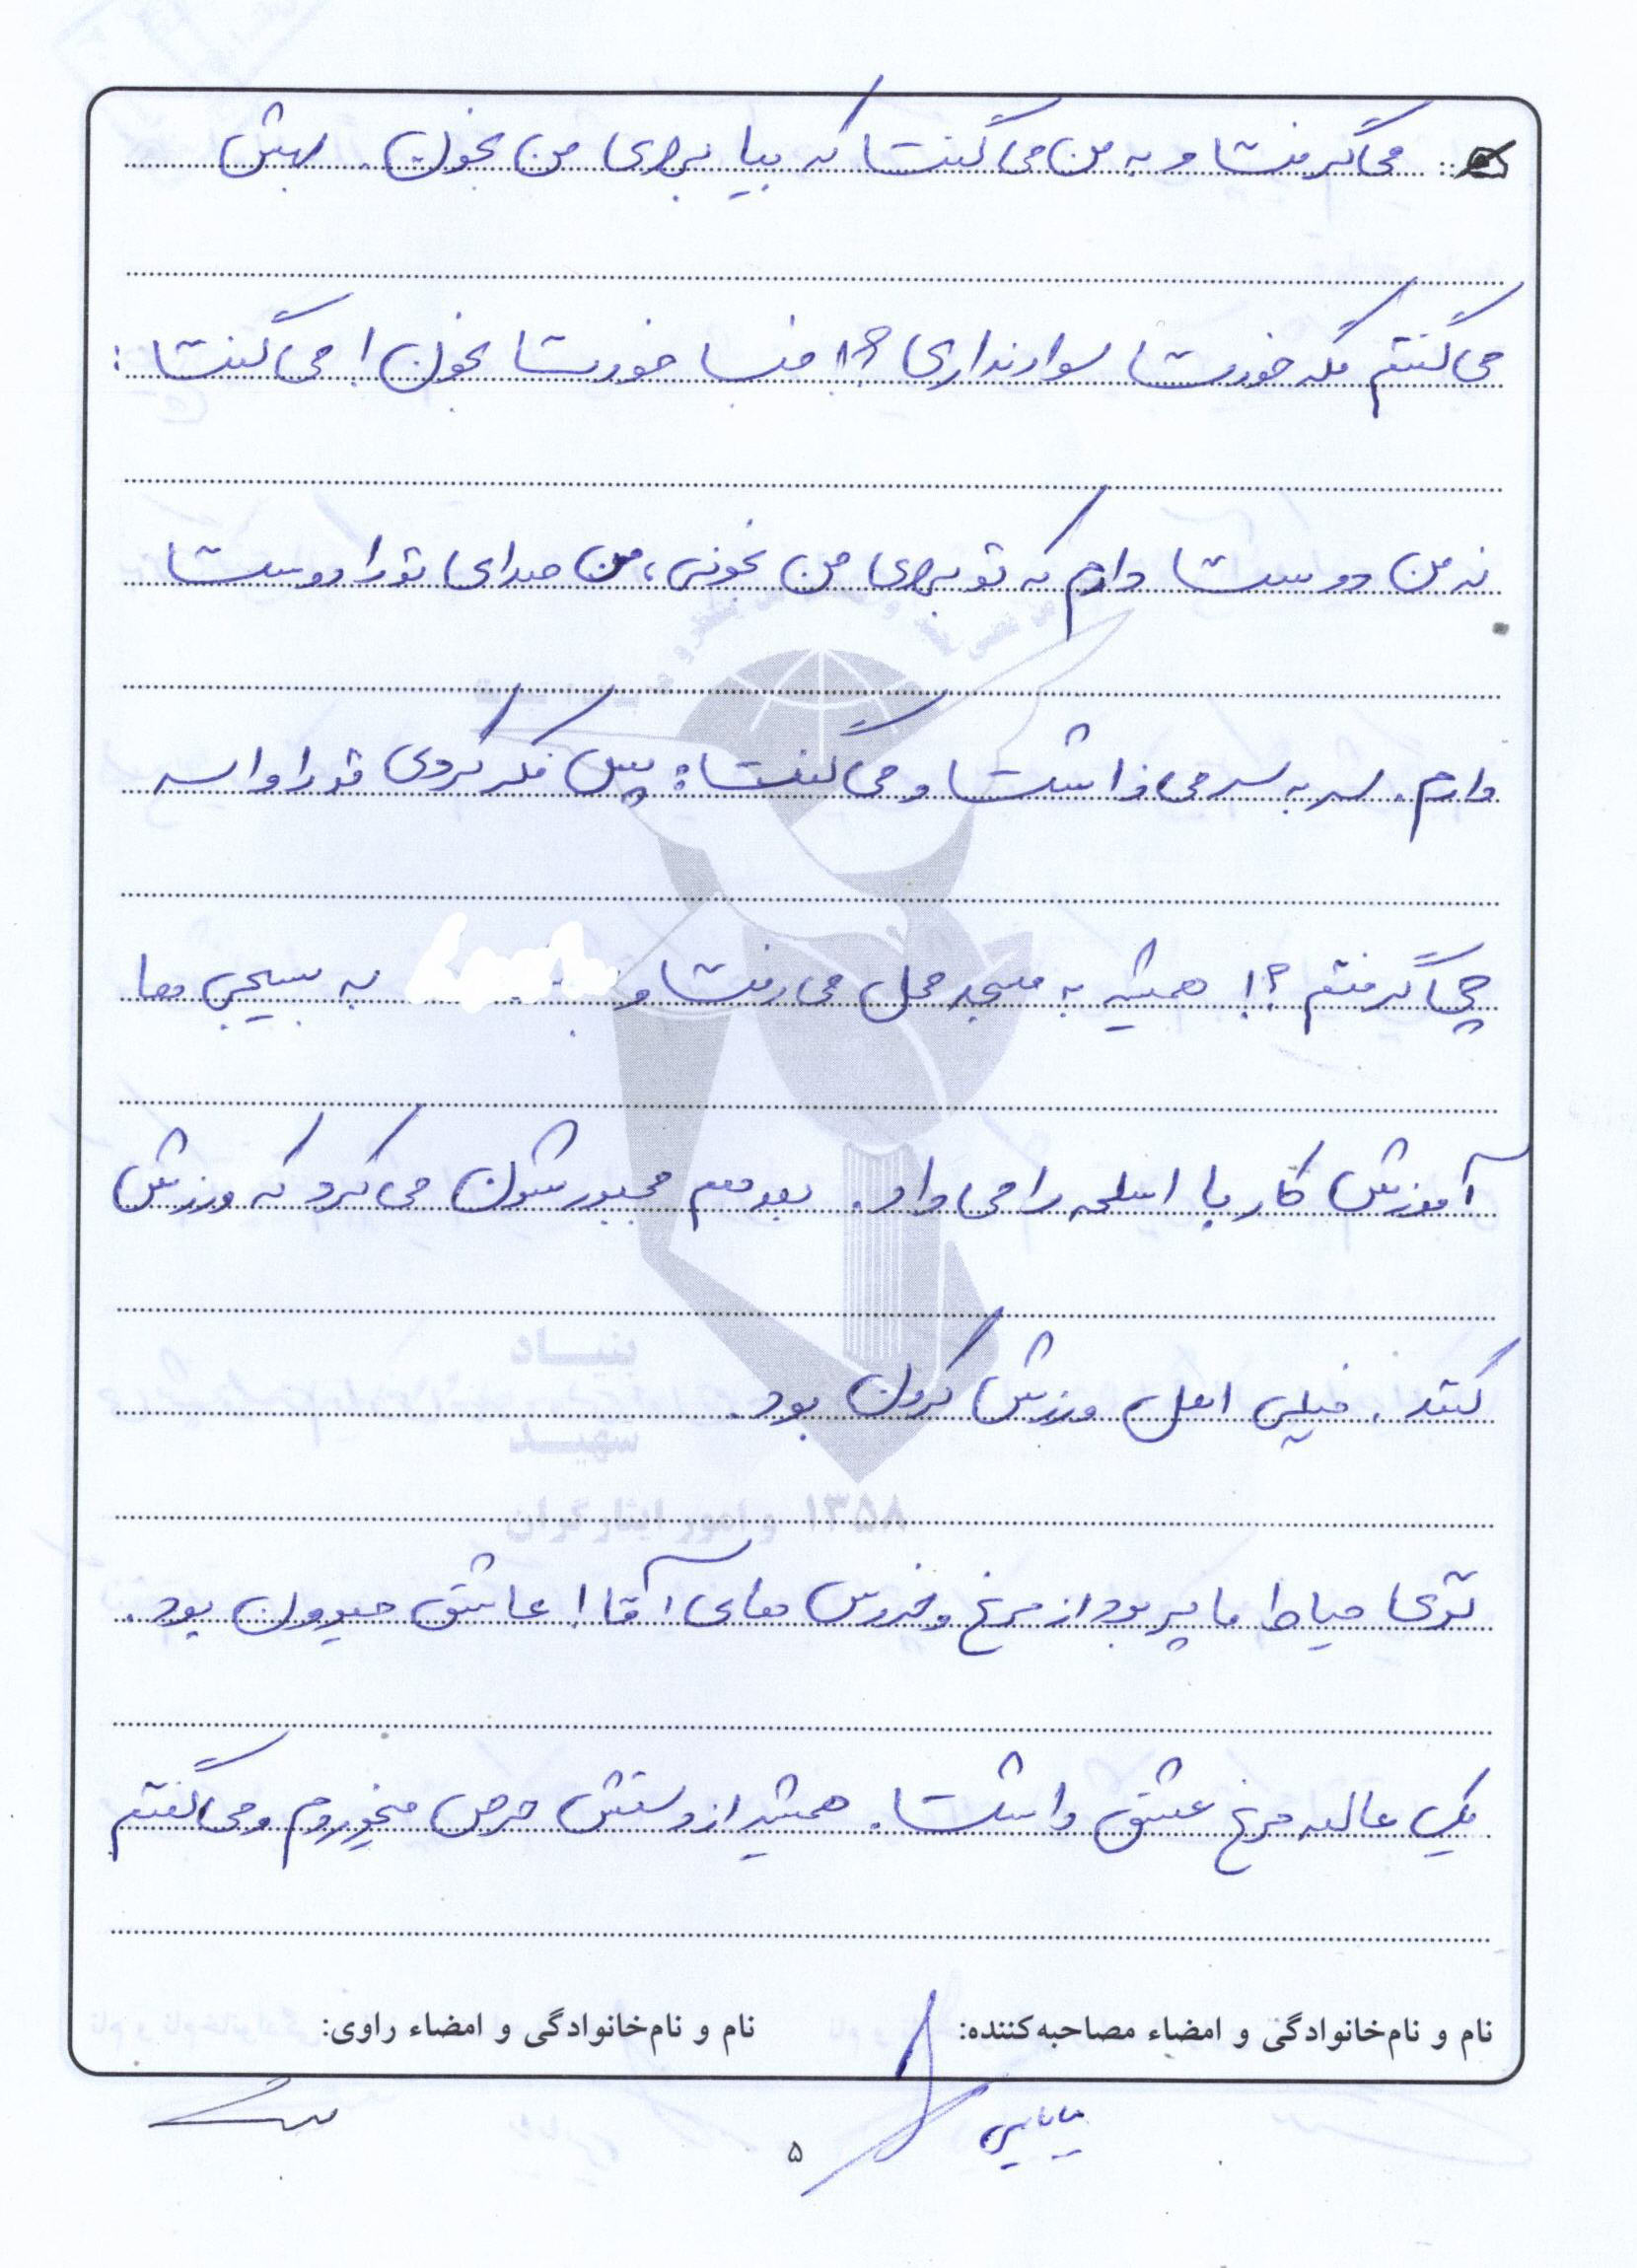 می گرفت و به من می گفت که بیا برای من بخون. بهش
می گفتم مگه خودت سواد نداری؟! خب خودت بخون! می گفت:
نه من دوست دارم که تو برای من بخونی، من صدای تو را دوست
دارم. سر به سر می ذاشت و می گفت: پس فکر کردی تو را واسه
چی گرفتم؟! همیشه به مسجد محل می رفت و به بسیجی ها
آموزش کار با اسلحه را می داد. بعد هم مجبورشون می کرد که ورزش
کنند. خیلی اهل ورزش کردن بود.
توی حیاط ما پر بود از مرغ و خروس های آقا! عاشق حیوون بود.
یک عالمه مرغ عشق داشت. همیشه از دستش حرص میخوردم و می گفتم
نام و نام‌خانوادگی و امضاء مصاحبه‌کننده: نام و نام‌خانوادگی و امضاء راوی:
۵
بنیاد
شهید
۱۳۵۸ و امور ایثارگران